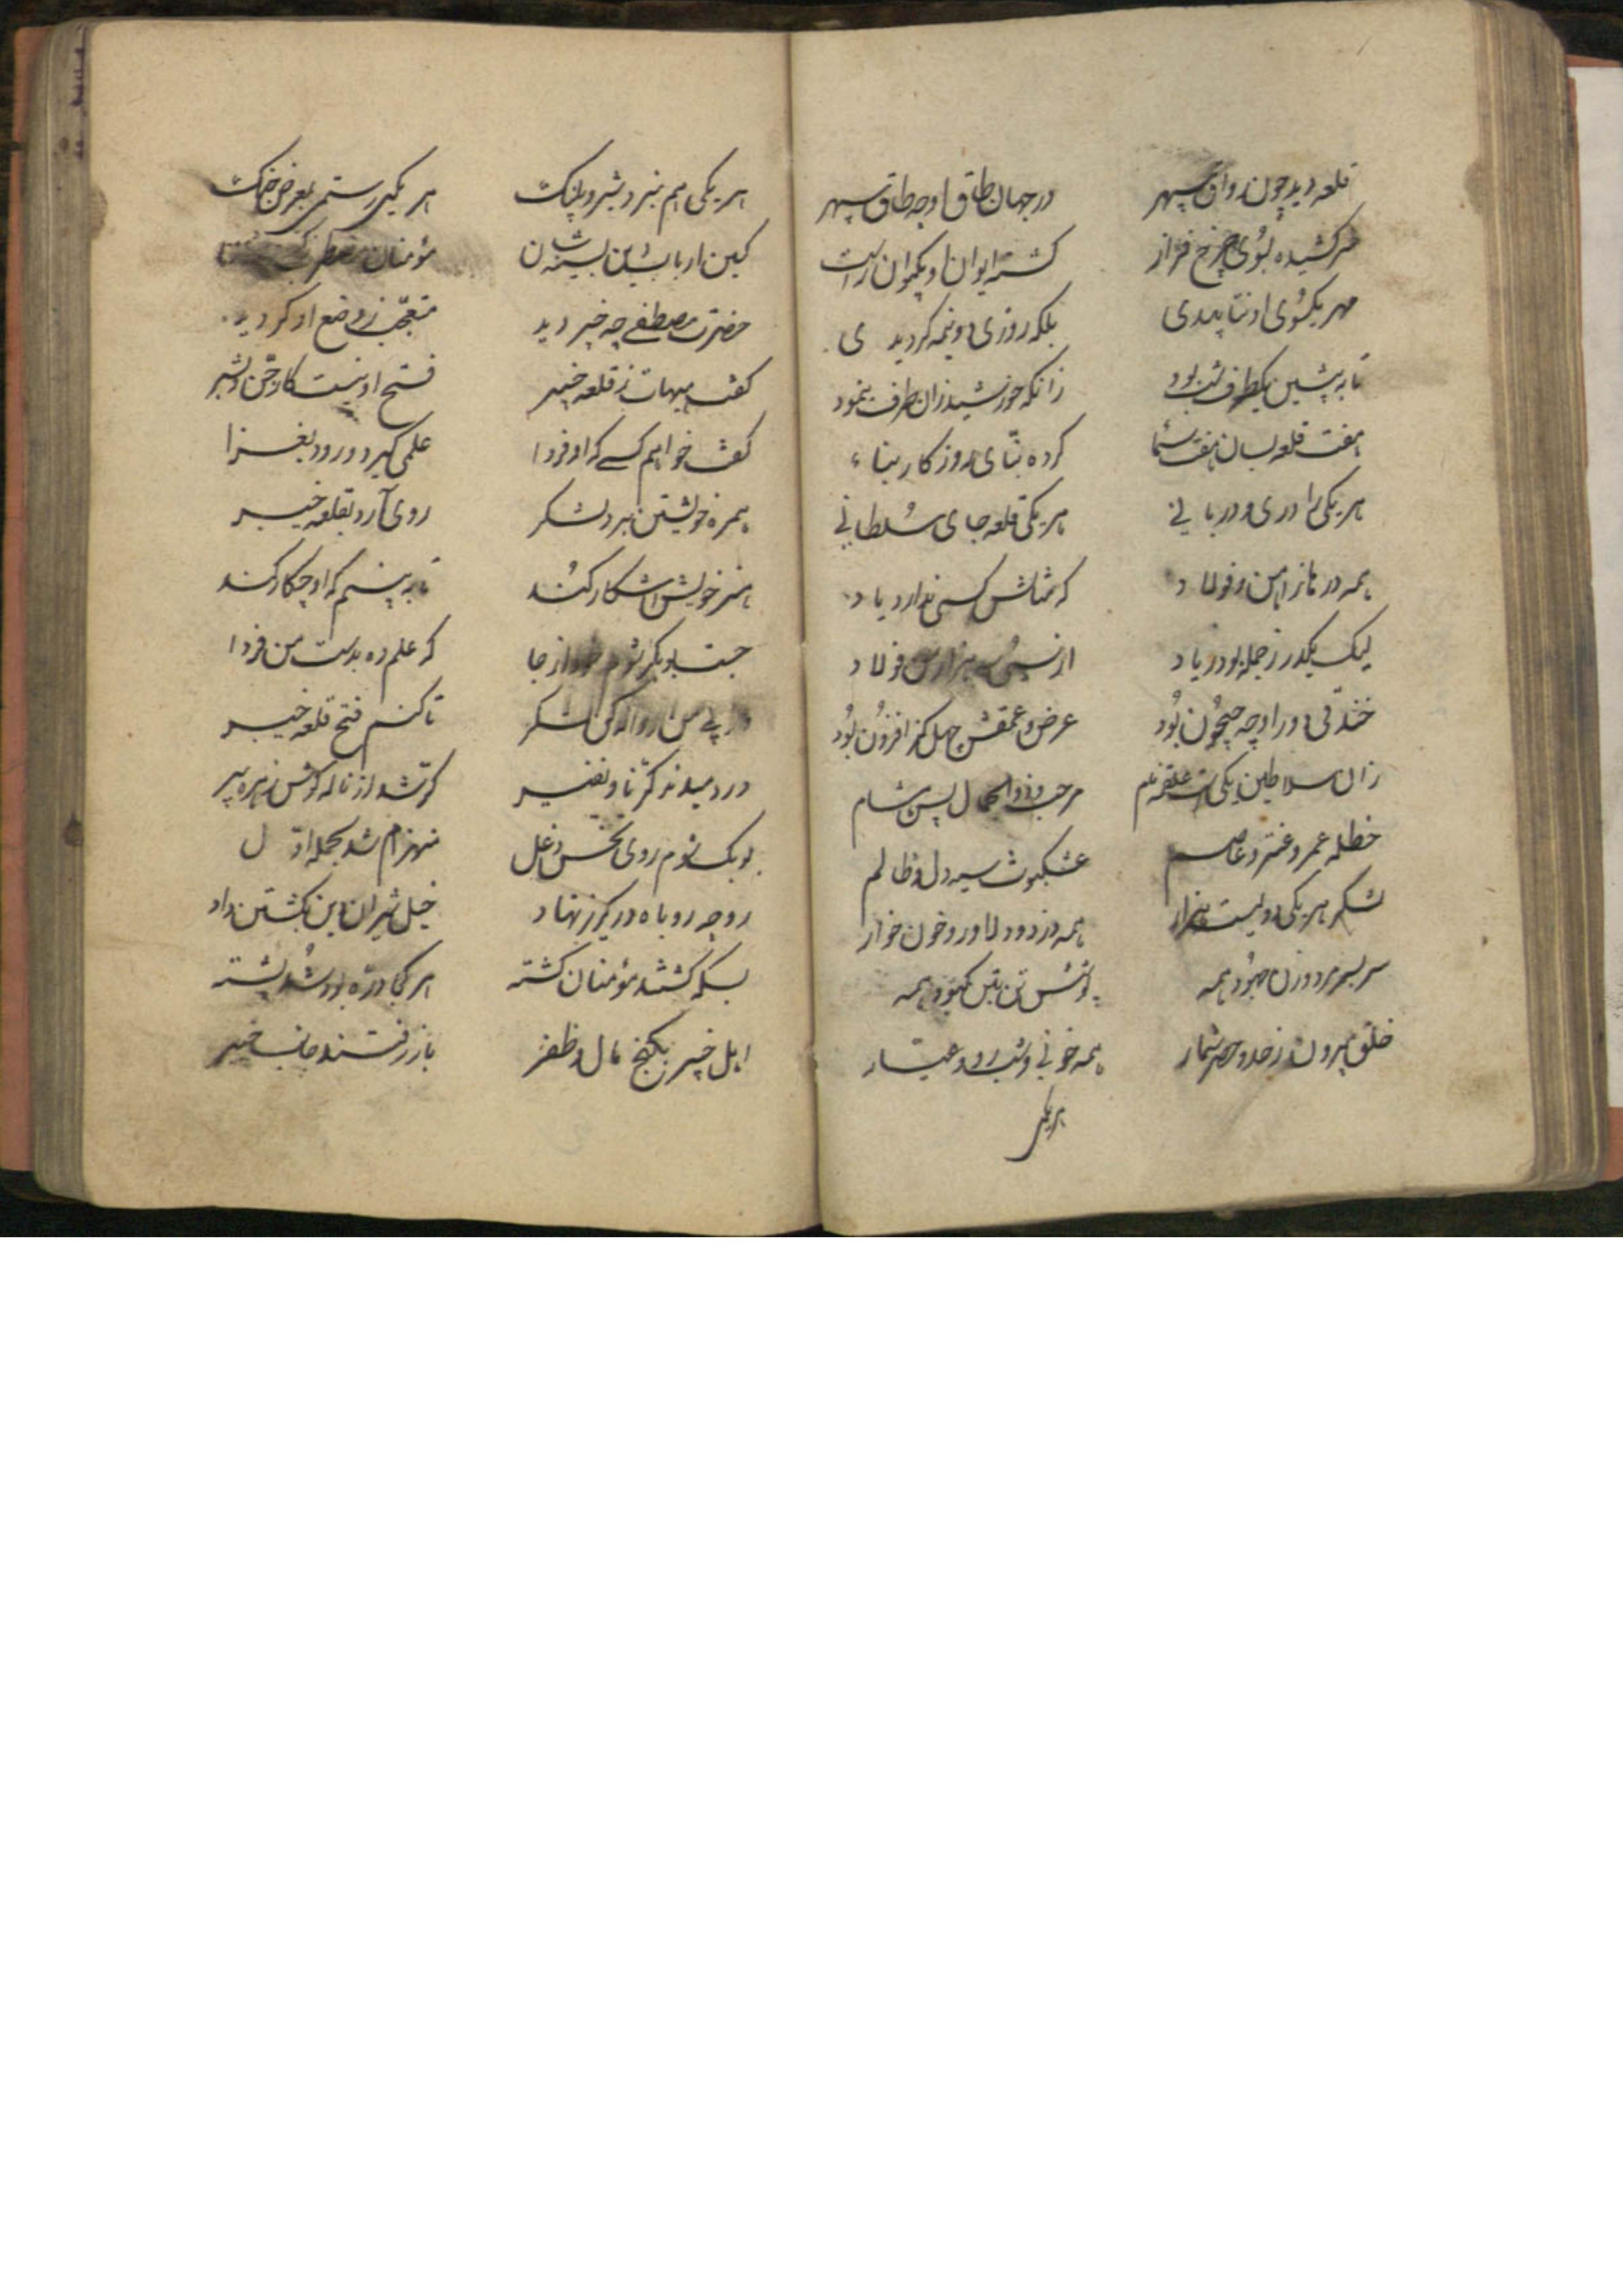 قلعه دید چون رواق سپهر در جهان طاق او چه طاق سپهر
سر کشیده بسوی چرخ فراز کشته ایوان او بکیوان راست
مهر یکسوی او نتابیدی بلکه روزی دو نیمه کردیدی
تا به پیشین یکطرف شب بود زانکه خورشید زان طرف ننمود
هفت قلعه بسان هفت سما کرده بنّای روزکار بناء
هر یکی را دری و دربانی هر یکی قلعه جای سلطانی
همه درها ز آهن و فولاد که مثالش کسی ندارد یاد
لیک یکدر ز جمله بود زیاد از سی هزار من فولاد
خندقی دور او چه جیحون بود عرض و عمقش چهل کز افزون بود
زان سلاطین یکی علقم نام مرحب و ذوالجمال پس شام
حنظله عمرو عنتر و عاصم عنکبوت سیه دل و ظالم
لشکر هر یکی دویست هزار همه دزد و دلاور و خون خوار
سر بسر مرد و زن جهود همه همه
خلق بیرون ز حد و حصر شمار همه خونی و شب رو و عیّار
هر یکی
هر یکی هم نبرد شیر و پلنک هر یکی رستمی بعرض جنک
مؤمنان
حضرت مصطفی چه خیبر دید متعجّب ز وضع او کردید
کفت هیهات ز قلعه خیبر فتح او نیست کار جن و بشر
کفت خواهم کسی که او فردا علمی کیرد و رود بغزا
همره خویشتن برد لشکر روی آرد بقلعه خیبر
هنر خویش اشکار کند تا ببینم که او چکار کند
جست بوبکر شوم از جا که علم ده بدست من فردا
در پی من روانه کن لشکر تا کنم فتح قلعه خیبر
در دمیدند کرّنا و نفیر کر شد از ناله کوش زهره پیر
بوبک شوم روی نحس دغل منهزم شد بحمله اوّل
رو چه روباه در کریز نهاد خیل شیران دین بکشتن داد
بسکه کشتند مؤمنان کشته هر کجا درّه بود شد پشته
اهل خیبر بکنج مال و ظفر باز رفتند جانب خیبر